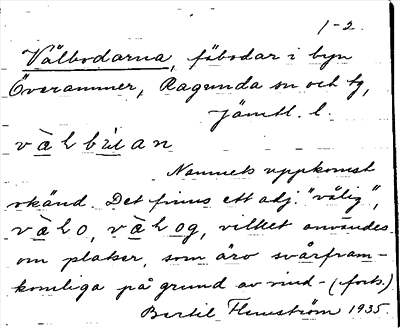 1-2.
Vålbodarna, fäbodar i byn
Överammer, Ragunda sn och tg,
Jämtl. l.
Namnets uppkomst
okänd. Det finns ett adj. "vålig",
vilket användes
om platser, som äro svårfram-
komliga på grund av vind- (forts.)
Bertil Flemström 1935.